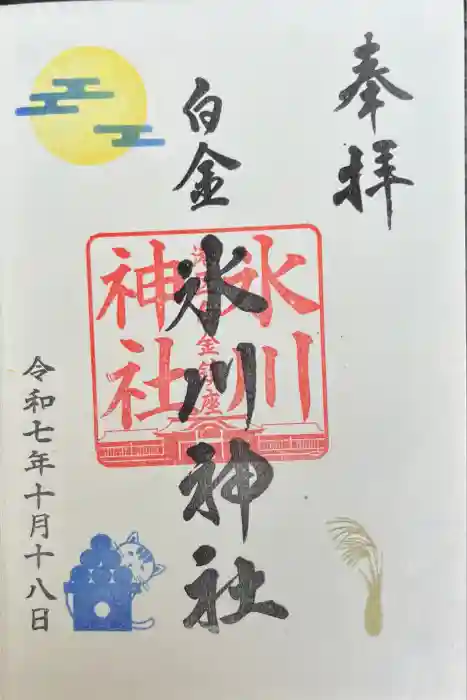 奉拝
白金
氷川神社
氷川
金鎮座
神社
令和七年十月十八日